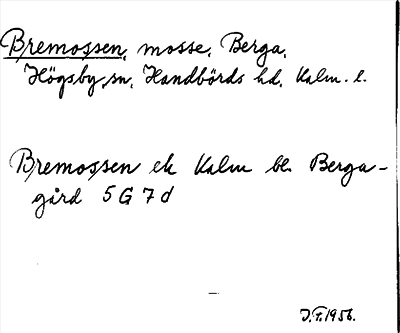 Bremossen, mosse, Berga,
Högsby sn, Handbörds hd, Kalm. l.
Bremossen ek Kalm bl. Berga-
gård 5 G 7 d
J.T. 1956.